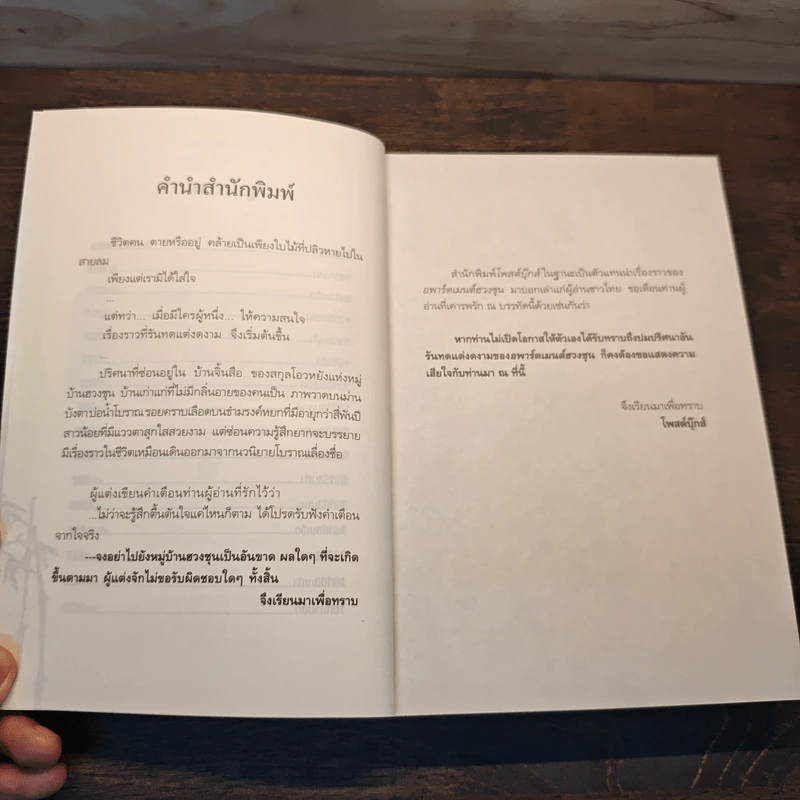 คำนำสำนักพิมพ์
ชีวิตคน ตายหรืออยู่ คล้ายเป็นเพียงใบไม้ที่ปลิวหายไปใน
สายลม
เพียงแต่เรามิได้ใส่ใจ
...
แต่ทว่า... เมื่อมีใครผู้หนึ่ง... ให้ความสนใจ
เรื่องราวที่รันทดแต่งดงาม จึงเริ่มต้นขึ้น
...
ปริศนาที่ซ่อนอยู่ใน บ้านจิ้นสือ ของสกุลโอวหยังแห่งหมู่
บ้านฮวงชุน บ้านเก่าแก่ที่ไม่มีกลิ่นอายของคนเป็น ภาพวาดบนม่าน
บังตา บ่อน้ำโบราณ รอยคราบเลือดบนธำมรงค์หยกที่มีอายุกว่าสี่พันปี
สาวน้อยที่มีแววตาสุกใสสวยงาม แต่ซ่อนความรู้สึกยากจะบรรยาย
มีเรื่องราวในชีวิตเหมือนเดินออกมาจากนวนิยายโบราณเลื่องชื่อ
ผู้แต่งเขียนคำเตือนท่านผู้อ่านที่รักไว้ว่า
...ไม่ว่าจะรู้สึกตื้นตันใจแค่ไหนก็ตาม ได้โปรดรับฟังคำเตือน
จากใจจริง
---จงอย่าไปยังหมู่บ้านฮวงชุนเป็นอันขาด ผลใดๆ ที่จะเกิด
ขึ้นตามมา ผู้แต่งจักไม่ขอรับผิดชอบใดๆ ทั้งสิ้น
จึงเรียนมาเพื่อทราบ
สำนักพิมพ์โพสต์บุ๊กส์ ในฐานะเป็นตัวแทนนำเรื่องราวของ
อพาร์ตเมนต์ฮวงชุน มาบอกเล่าแก่ผู้อ่านชาวไทย ขอเตือนท่านผู้
อ่านที่เคารพรัก ณ บรรทัดนี้ด้วยเช่นกันว่า
หากท่านไม่เปิดโอกาสให้ตัวเองได้รับทราบถึงปมปริศนาอัน
รันทดแต่งดงามของอพาร์ตเมนต์ฮวงชุน ก็คงต้องขอแสดงความ
เสียใจกับท่านมา ณ ที่นี้
จึงเรียนมาเพื่อทราบ
โพสต์บุ๊กส์